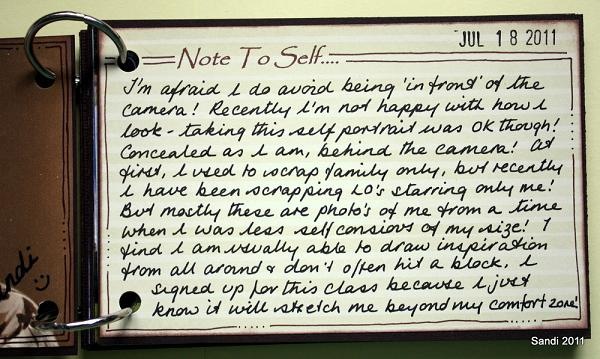 JUL 18 2011
Note To Self....
I'm afraid I do avoid being 'in front' of the
camera! Recently I'm not happy with how I
look - taking this self portrait was OK though!
Concealed as I am, behind the camera! At
first, I used to scrap family only, but recently
I have been scrapping LO's starring only me!
But mostly these are photo's of me from a time
when I was less self consious of my size! I
find I am usually able to draw inspiration
from all around & don't often hit a block. I
signed up for this class because I just
know it will stretch me beyond my comfort zone!
Sandi 2011